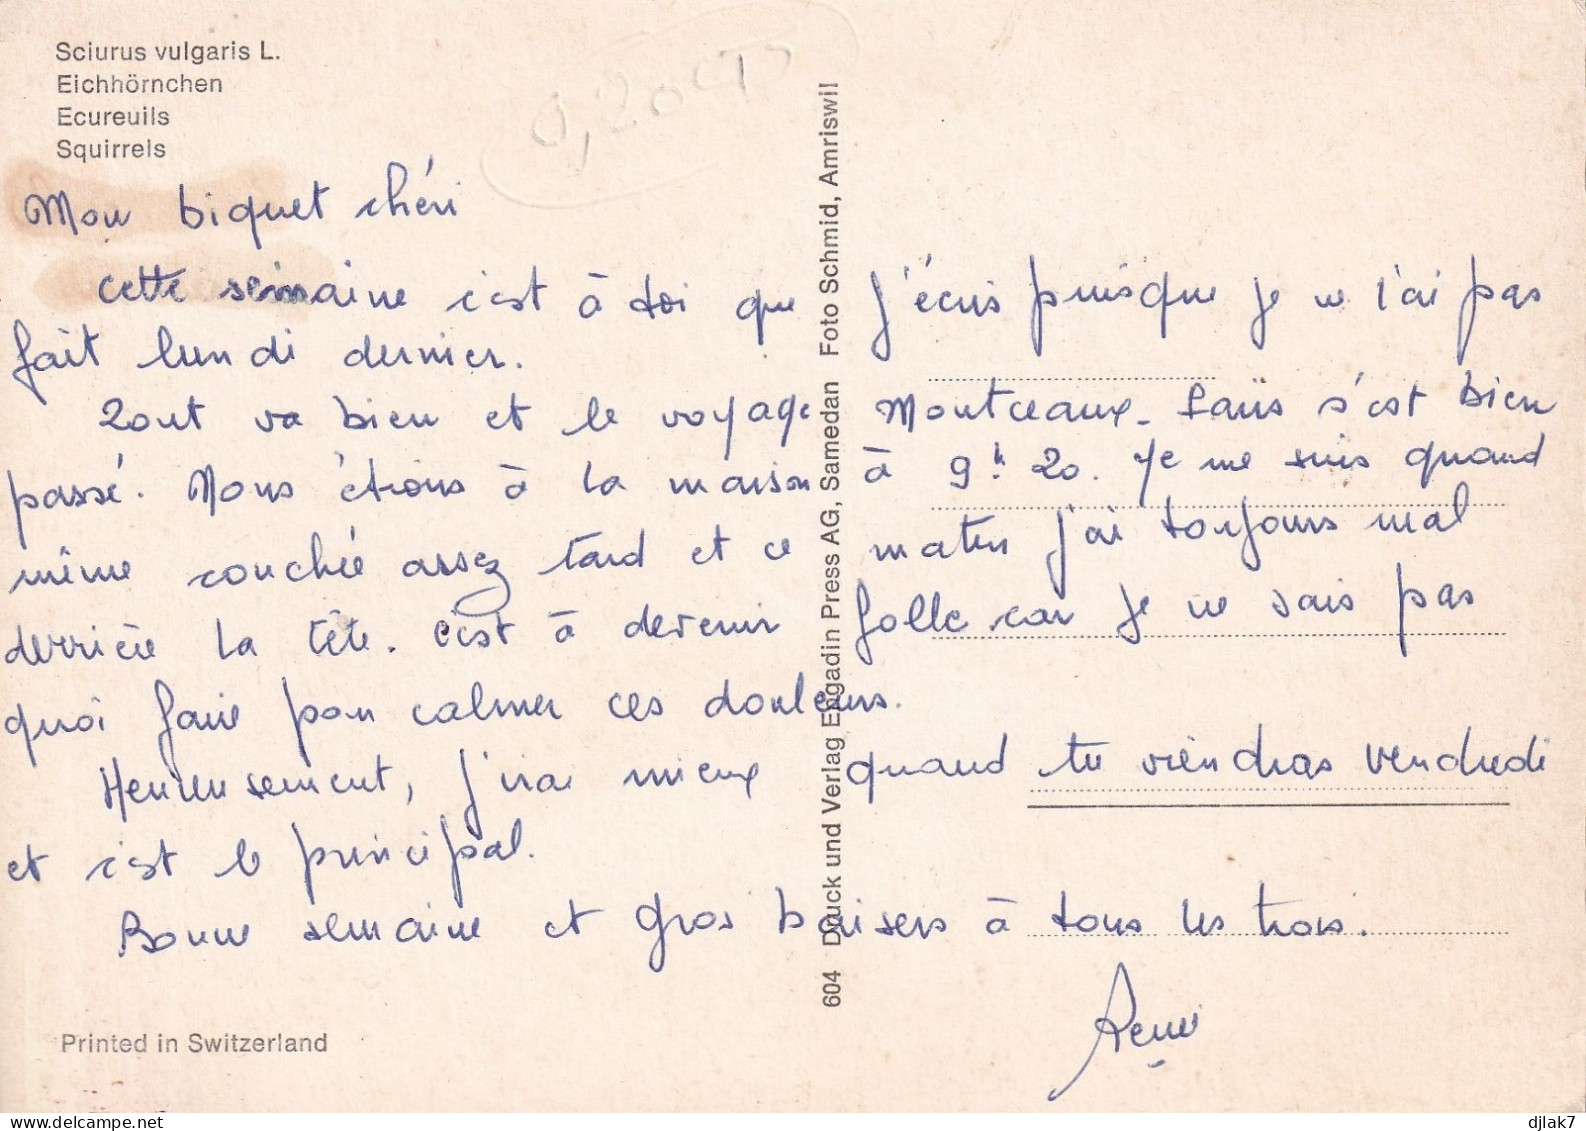 Sciurus vulgaris L.
Eichhörnchen
Ecureuils
Squirrels
0,20
Mon biquet chéri
cette semaine c'est à toi que j'écris puisque je ne l'ai pas
fait lundi dernier.
Tout va bien et le voyage Montceaux- s'est bien
passé. Nous étions à la maison à 9h 20. Je me suis quand
même couchée assez tard et ce matin j'ai toujours mal
derrière la tête. C'est à devenir folle car je ne sais pas
quoi faire pour calmer ces douleurs.
Heureusement, j'irai mieux quand tu viendras vendredi
et c'est le principal.
Bonne semaine et gros baisers à tous les trois.
604 Druck und Verlag Engadin Press AG, Samedan Foto Schmid, Amriswil
Printed in Switzerland
djlak7